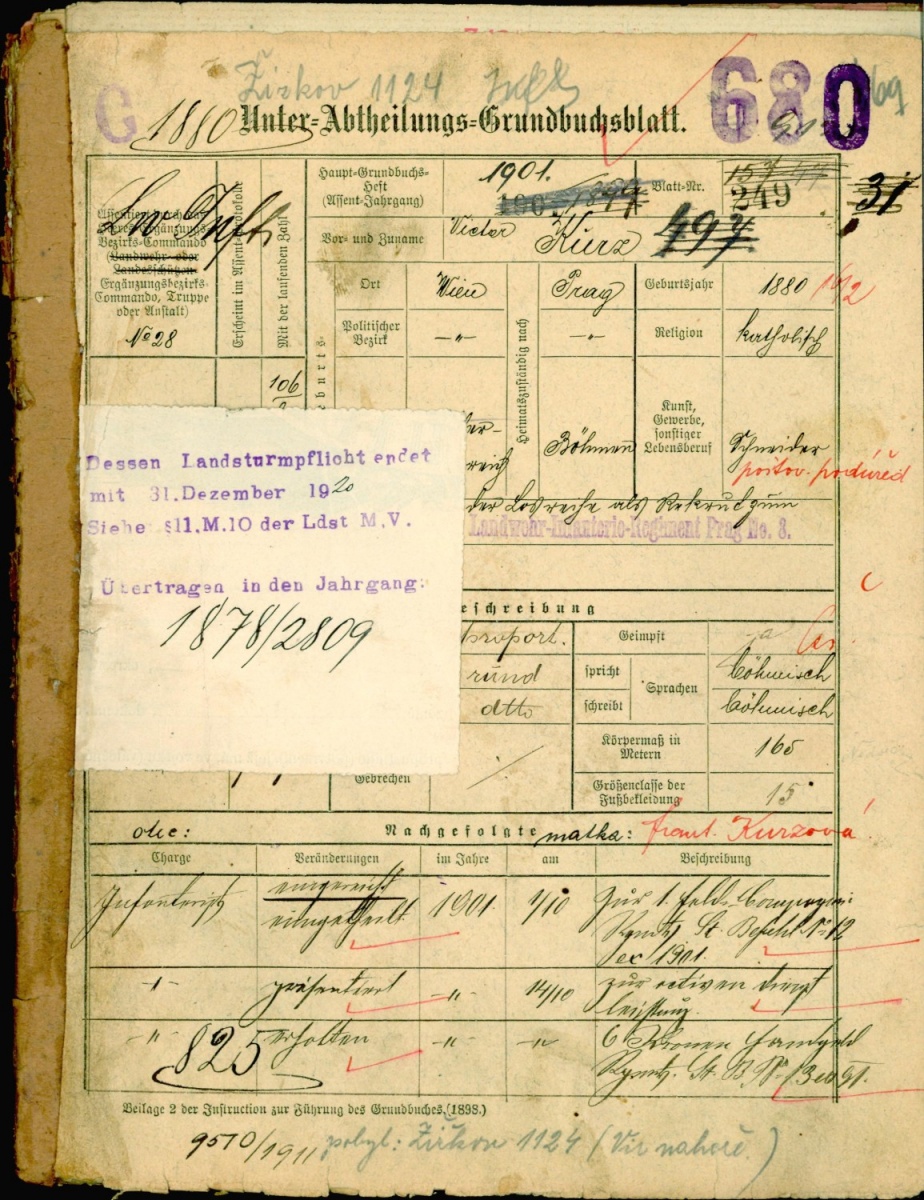 Žižkov 1124
G
1880 Unter-Abtheilungs-Grundbuchsblatt.
680
69
Assentirt durch das
Heeres-Ergänzungs-
Bezirks-Commando
(Landwehr- oder
Landesschützen-
Ergänzungsbezirks-
Commando, Truppe
oder Anstalt)
No 28
Erscheint im Assent-Protokolle
Mit der laufenden Zahl
106
Haupt-Grundbuchs-
Heft
(Assent-Jahrgang)
1901.
Blatt-Nr.
157
249
31
Vor- und Zuname
Victor Kurz
497
Ort
Wien
Heimatszuständig nach
Prag
Geburtsjahr
1880
Politischer
Bezirk
-"-
-"-
Religion
katholisch
Böhmen
Kunst,
Gewerbe,
sonstiger
Lebensberuf
Schneider
poštov. podúřed
der Losreihe als Rekrut zum
Landwehr-Infanterie-Regiment Prag No. 8.
Dessen Landsturmpflicht endet
mit 31.Dezember 1920
Siehe §11.M.10 der Ldst M.V.
Übertragen in den Jahrgang:
1878/2809
eschreibung
proport.
rund
dtto
Gebrechen
Geimpft
ja
spricht
schreibt
Sprachen
böhmisch
böhmisch
Körpermaß in
Metern
165
Größenclasse der
Fußbekleidung
15
otec:
Nachgefolgte
matka: Frant. Kurzová
Charge
Veränderungen
im Jahre
am
Beschreibung
Infanterist
eingereiht
eingetheilt
1901.
1/10
zur 1. Feld-Compagnie
Rgmts St. Befehl No 12
ex 1901.
-"-
präsentiert
-"-
14/10
zur activen Dienst
leistung.
-"-
825
erhalten
-"-
-"-
6 Kronen Handgeld
Rgmts. St. B. No. 13 ex 91.
Beilage 2 der Instruction zur Führung des Grundbuches. (1898.)
9570/1911
pobyt: Žižkov 1124 (Viz nahoře.)